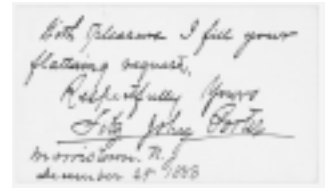 With pleasure I fill your
flattering request.
Respectfully Yours
Fitz John Porter
Morristown. N. J
december